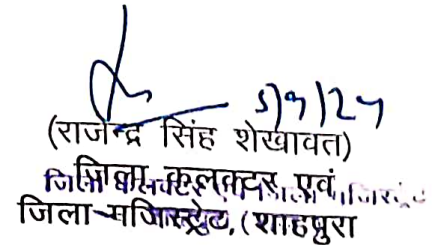 5/9/24
(राजेन्द्र सिंह शेखावत)
जिला कलक्टर एवं
जिला मजिस्ट्रेट, (शाहपुरा